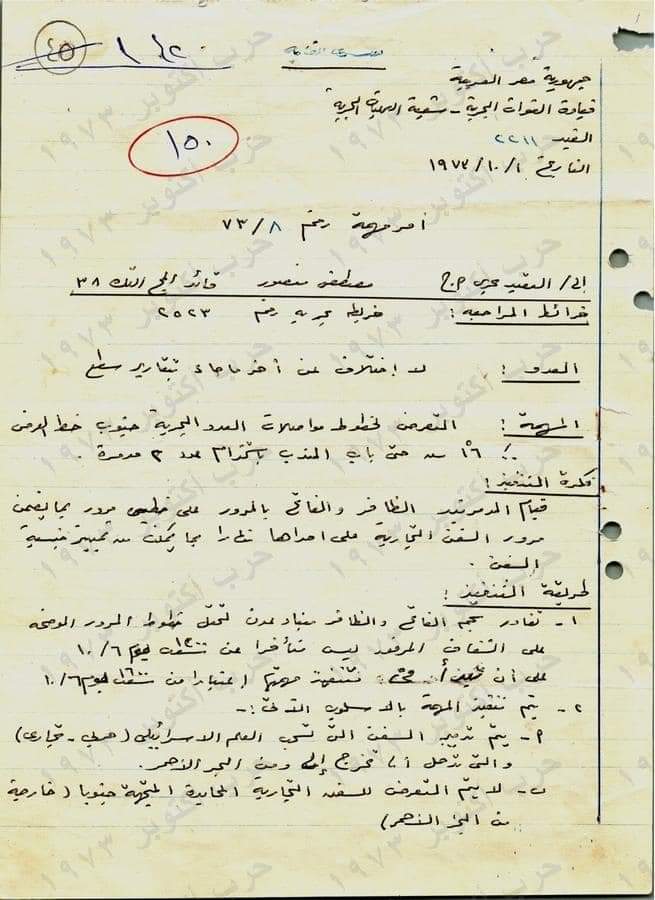 ٤٥
١٢٠
سرى للغاية
جمهورية مصر العربية
قيادة القوات البحرية - شعبة العمليات البحرية
القيد ٢٢١١
التاريخ ١ /١٠/ ١٩٧٣
١٥٠
أمر مهمة رقم ٨/ ٧٣
إلى/ العقيد بحرى ا.ح مصطفى منصور قائد المج التك ٣٨
خرائط المراجعة : خريطة بحرية رقم ٢٥٢٣
العدو : لا إختلاف عن أخر ما جاء بتقارير سطع
المهمة : التعرض لخطوط مواصلات العدو البحرية جنوب خط العرض
١٦ ° حتى باب المندب بإستخدام عدد ٢ مدمرة .
فكرة التنفيذ :
قيام المدمرتين الظافر والفاتح بالمرور على خطى مرور بما يضمن
مرور السفن التجارية على احداها نهارا بما يمكن من تمييز جنسية
السفن .
طريقة التنفيذ :
١ - تغادر الفاتح والظافر ميناء عدن لتحتل خطوط المرور الموضحة
على الشفاف المرفق ليس متأخرا عن ١٢٠٠ يوم ١٠/٦
على أن تنفيذ مهمتها إعتبارا من ١٦٠٠ يوم ١٠/٦
٢ - يتم تنفيذ المهمة بالاسلوب الآتى :-
أ - يتم تدمير السفن التى تحمل العلم الاسرائيلى (حربى - تجارى)
والتى تدخل أو تخرج إلى ومن البحر الأحمر .
ب - لا يتم التعرض للسفن التجارية المحايدة المتجهة جنوبا (خارجية
من البحر الأحمر)
حرب أكتوبر ١٩٧٣